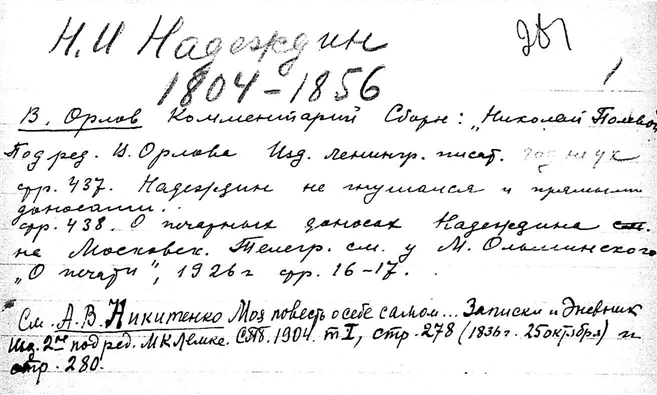 Н.И Надеждин
1804-1856
1
В. Орлов Комментарий Сборн: „Николай Полевой
Под ред. В. Орлова Изд. Ленингр. писат. год не ук
стр. 437. Надеждин не гнушался и прямыми
доносами..
стр. 438. О печатных доносах Надеждина
на Московск. Телегр. см. у М. Ольминского
„О печати", 1926г стр. 16-17.
См. А.В. Никитенко Моя повесть о себе самом... Записки и Дневник
Изд. 2ое под ред. М К Лемке. СПб. 1904. т I, стр. 278 (1836г. 25 октября) и
стр. 280.